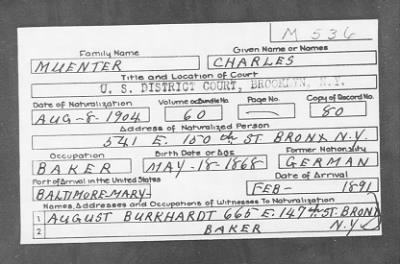 M 536
Family Name Given Name or Names
MUENTER CHARLES
Title and Location of Court
U. S. DISTRICT COURT, BROOKLYN, N.Y.
Date of Naturalization Volume or Bundle No. Page No. Copy of Record No.
AUG-8-1904 60 — 80
Address of Naturalized Person
541 E. 150th ST BRONX N.Y.
Occupation Birth Date or Age Former Nationality
BAKER MAY-18-1868 GERMAN
Port of Arrival in the United States Date of Arrival
BALTIMORE-MARY- FEB- 1891
Names, Addresses and Occupations of Witnesses To Naturalization
1 AUGUST BURKHARDT 665 E. 147th ST. BRONX
2 BAKER N.Y.